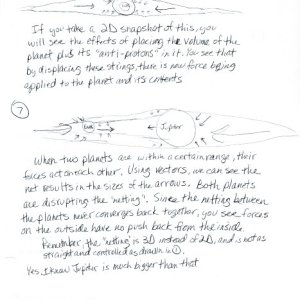 If you take a 2D snapshot of this, you
will see the effects of placing the volume of the
planet plus its "anti-protons" in it. You see that
by displacing these strings, there is new force being
applied to the planet and its contents
7
Earth
Jupiter
When two planets are within a certain range, their
forces act on each other. Using vectors, we can see the
net results in the sizes of the arrows. Both planets
are disrupting the "netting". Since the netting between
the planets never converges back together, you see forces
on the outside have no push back from the inside.
Remember, the "netting" is 3D instead of 2D, and is not as
straight and controlled as drawn in ①.
Yes, I know Jupiter is much bigger than that